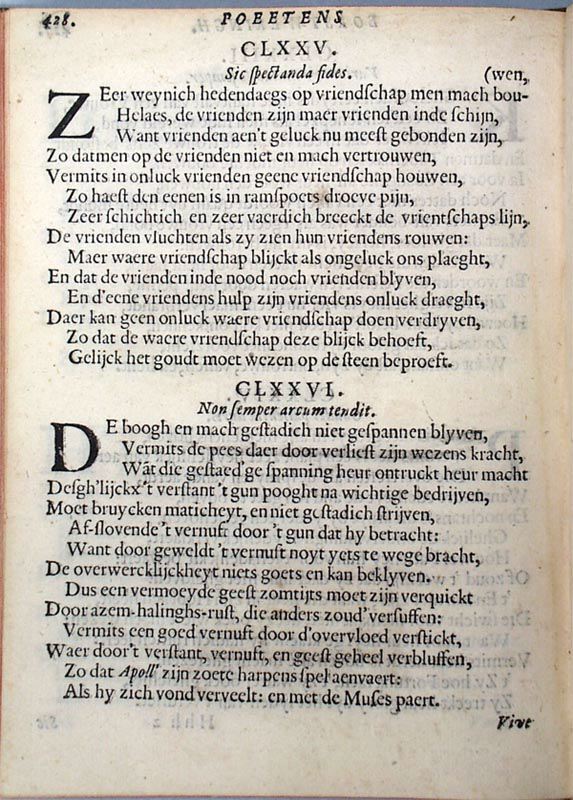 428. POEETENS
CLXXV.
Sic spectanda fides. (wen,
ZEer weynich hedendaegs op vriendschap men mach bou-
Helaes, de vrienden zijn maer vrienden inde schijn,
Want vrienden aen't geluck nu meest gebonden zijn,
Zo datmen op de vrienden niet en mach vertrouwen,
Vermits in onluck vrienden geene vriendschap houwen,
Zo haest den eenen is in ramspoets droeve pijn,
Zeer schichtich en zeer vaerdich breeckt de vrientschaps lijn,
De vrienden vluchten als zy zien hun vriendens rouwen:
Maer waere vriendschap blijckt als ongeluck ons plaeght,
En dat de vrienden inde nood noch vrienden blyven,
En d'eene vriendens hulp zijn vriendens onluck draeght,
Daer kan geen onluck waere vriendschap doen verdryven,
Zo dat de waere vriendschap deze blijck behoeft,
Gelijck het goudt moet wezen op de steen beproeft.
CLXXVI.
Non semper arcum tendit.
DE boogh en mach gestadich niet gespannen blyven,
Vermits de pees daer door verliest zijn wezens kracht,
Wāt die gestaed'ge spanning heur ontruckt heur macht
Desgh'lijckx 't verstant 't gun pooght na wichtige bedrijven,
Moet bruycken maticheyt, en niet gestadich strijven,
Af-slovende 't vernuft door 't gun dat hy betracht:
Want door geweldt 't vernuft noyt yets te wege bracht,
De overwercklijckheyt niets goets en kan beklyven.
Dus een vermoeyde geest zomtijts moet zijn verquickt
Door azem-halinghs-rust, die anders zoud' versuffen:
Vermits een goed vernuft door d'overvloed verstickt,
Waer door't verstant, vernuft, en geest geheel verbluffen,
Zo dat Apoll' zijn zoete harpens spel aenvaert:
Als hy zich vond verveelt: en met de Muses paert.
Vive